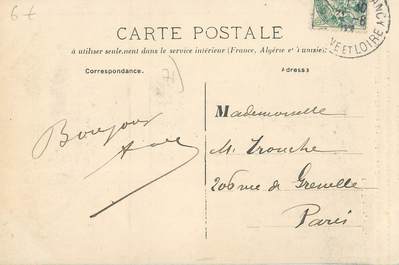 6 €
CARTE POSTALE
à utiliser seulement dans le service intérieur (France, Algérie et Tunisie)
Correspondance.
Adresse
71
Mademoiselle
Bonjour
M. Trouche
206 rue de Grenelle
Paris
NE ET LOIRE